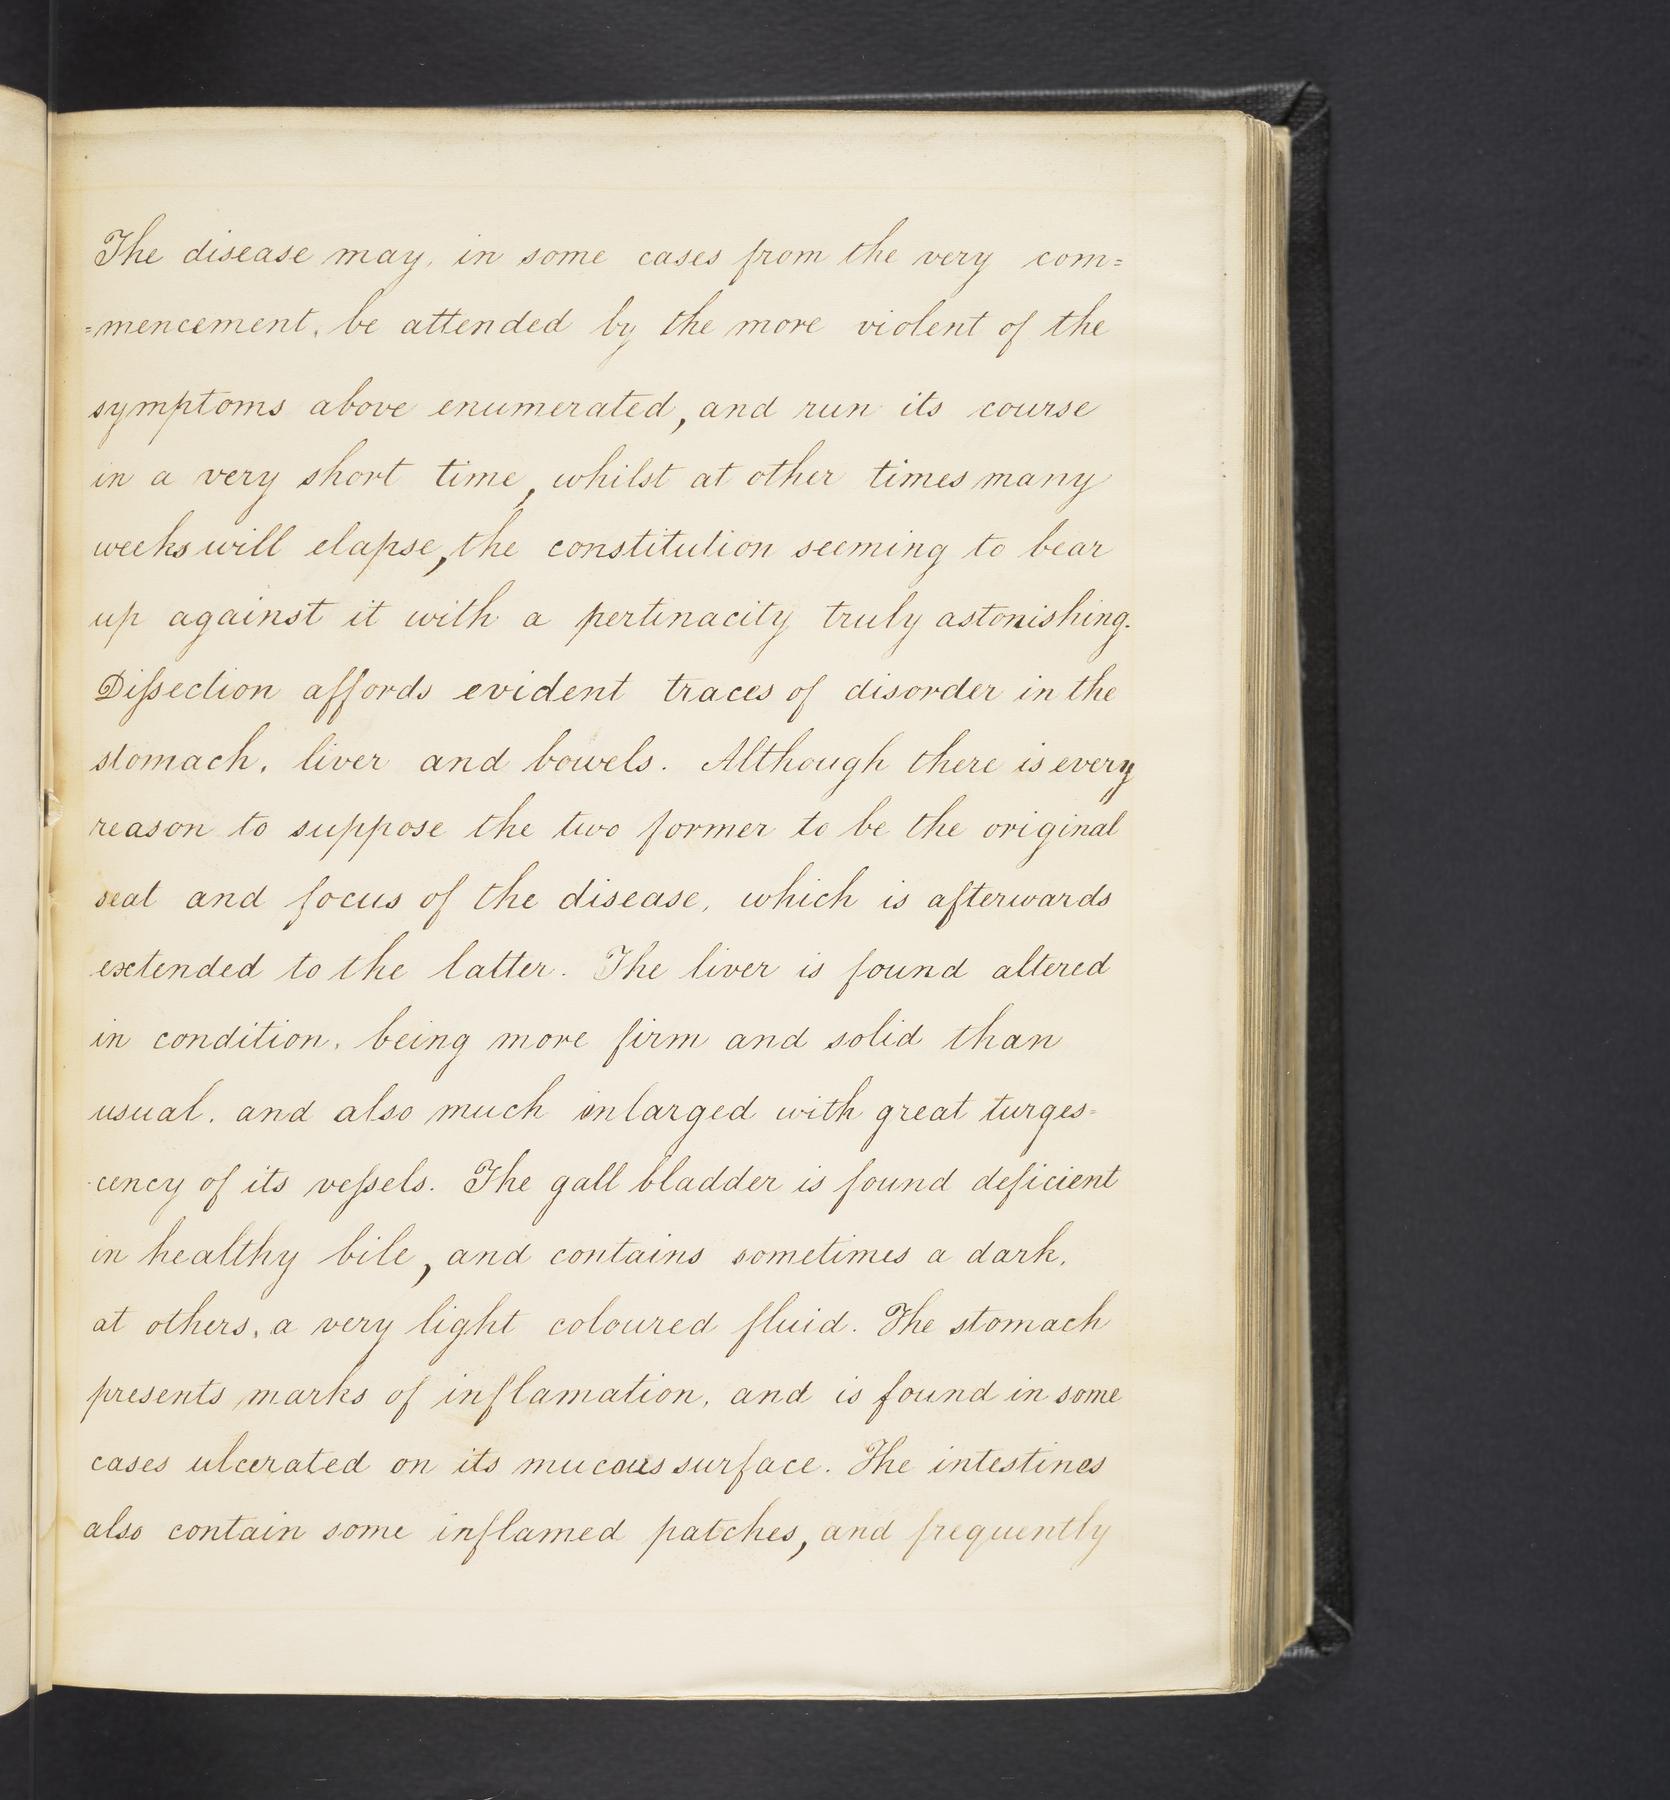 The disease may, in some cases from the very com=
=mencement, be attended by the more violent of the
symptoms above enumerated, and run its course
in a very short time, whilst at other times many
weeks will elapse, the constitution seeming to bear
up against it with a pertinacity truly astonishing.
Diſsection affords evident traces of disorder in the
stomach, liver and bowels. Although there is every
reason to suppose the two former to be the original
seat and focus of the disease, which is afterwards
extended to the latter. The liver is found altered
in condition, being more firm and solid than
usual, and also much enlarged with great turges=
-cency of its veſsels. The gall bladder is found deficient
in healthy bile, and contains sometimes a dark,
at others, a very light coloured fluid. The stomach
presents marks of inflamation, and is found in some
cases ulcerated on its mucous surface. The intestines
also contain some inflamed patches, and frequently